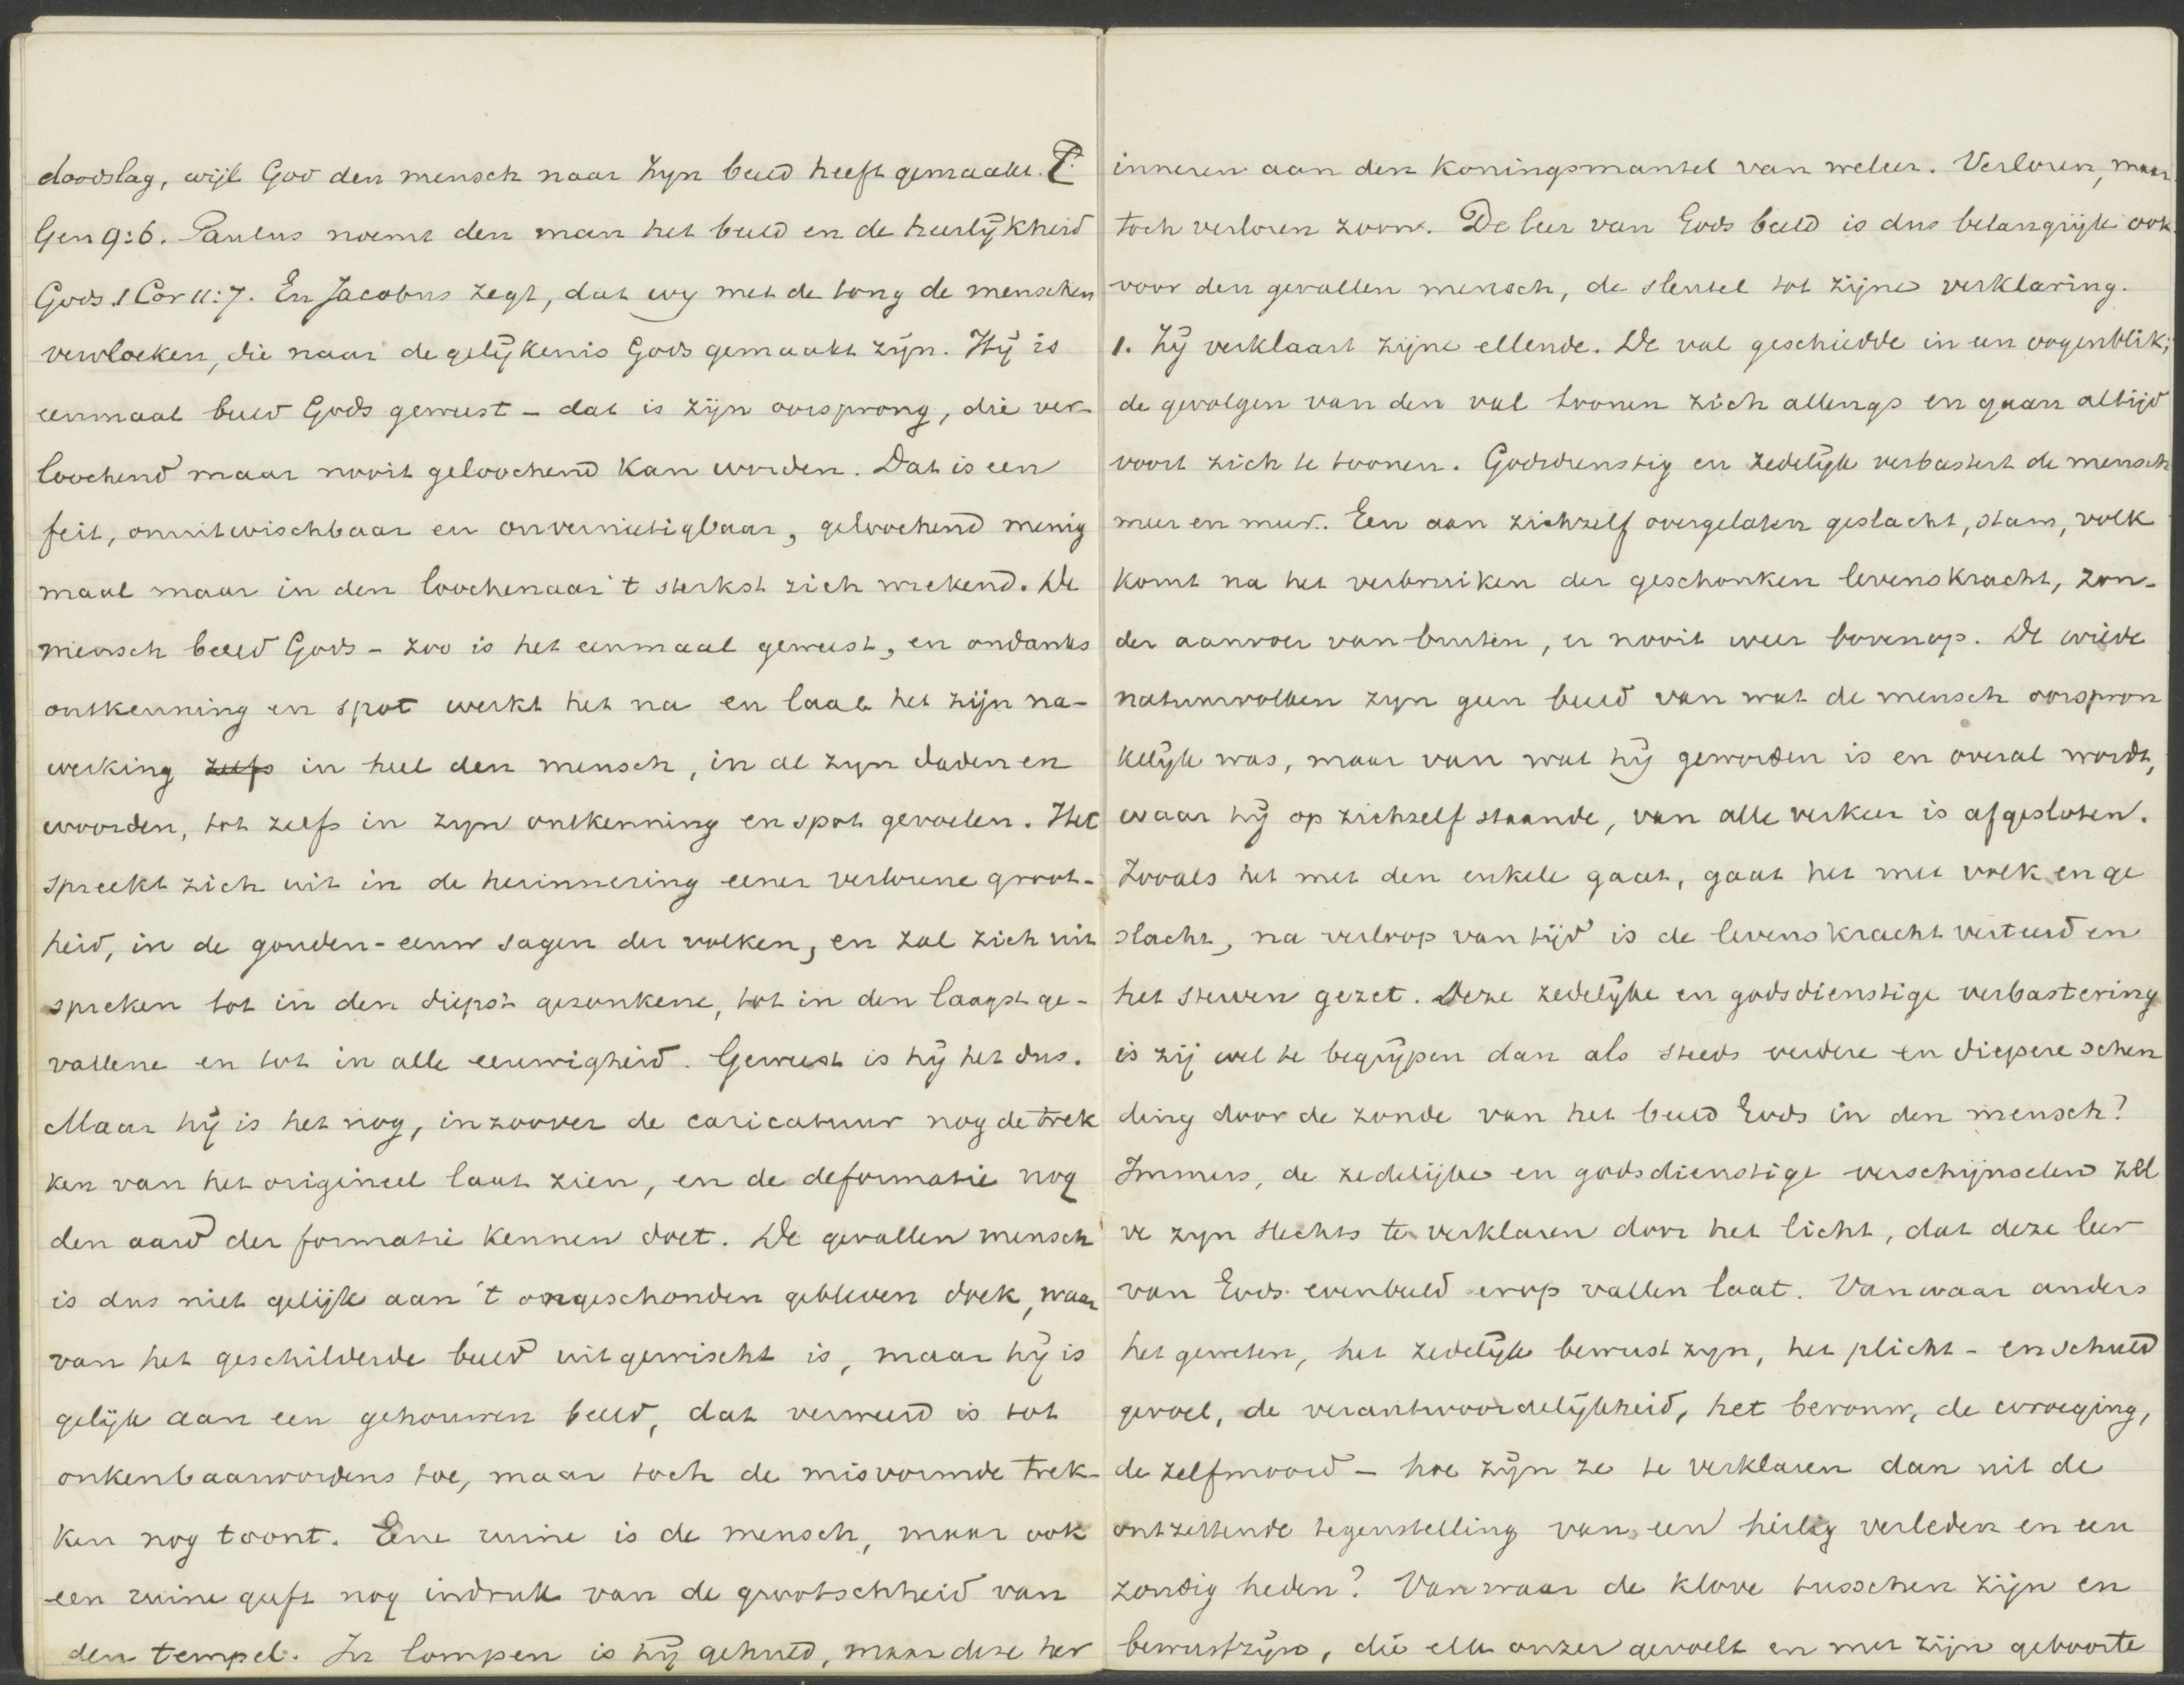 doodslag, wijl God den mensch naar Zyn beeld heeft gemaakt.
Gen 9:6. Paulus noemt den man het beeld en de heerlijkheid
Gods 1 Cor 11:7. En Jacobus zegt, dat wy met de tong de menschen
vervloeken, die naar de gelijkenis Gods gemaakt zijn. Hij is
eenmaal beeld Gods geweest – dat is zijn oorsprong, die ver-
loochend maar nooit geloochend kan worden. Dat is een
feit, onuitwischbaar en onvernietigbaar, geloochend menig
maal maar in den loochenaar 't sterkst zich wrekend. De
mensch beeld Gods – zoo is het eenmaal geweest, en ondanks
ontkenning en spot werkt het na en laat het zijn na-
werking zelfs in heel den mensch, in al zyn daden en
woorden, tot zelfs in zyn ontkenning en spot gevoelen. Het
spreekt zich uit in de herinnering eener verlorene groot-
heid, in de gouden-eeuw sagen der volken, en zal zich uit
spreken tot in den diepst gezonkene, tot in den laagst ge-
vallene en tot in alle eeuwigheid. Geweest is hij het dus.
Maar hij is het nog, inzoover de caricatuur nog de trek
ken van het origineel laat zien, en de deformatie nog
den aard der formatie kennen doet. De gevallen mensch
is dus niet gelijk aan 't ongeschonden gebleven doek, waar
van het geschilderde beeld uitgewischt is, maar hij is
gelijk aan een gehouwen beeld, dat verweerd is tot
onkenbaarwordens toe, maar toch de misvormde trek-
ken nog toont. Ene ruine is de mensch, maar ook
een ruine geeft nog indruk van de grootschheid van
den tempel. In lompen is hij gehuld, maar deze her
inneren aan den Koningsmantel van weleer. Verloren, maar
toch verloren zoon. De leer van Gods beeld is dus belangrijk ook
voor den gevallen mensch, de sleutel tot zijne verklaring.
1. Zij verklaart zijne ellende. De val geschiedde in een oogenblik;
de gevolgen van den val toonen zich allengs en gaan altijd
voort zich te toonen. Godsdienstig en zedelijk verbastert de mensch
meer en meer. Een aan zichzelf overgelaten geslacht, stam, volk
komt na het verbruiken der geschonken levenskracht, zon-
der aanvoer van buiten, er nooit weer bovenop. De wilde
natuurvolken zyn geen beeld van wat de mensch oorspron
kelijk was, maar van wat hij geworden is en overal wordt,
waar hij op zichzelf staande, van alle verkeer is afgesloten.
Zooals het met den enkele gaat, gaat het met volk en ge
slacht, na verloop van tijd is de levenskracht verteerd en
het sterven gezet. Deze zedelijke en godsdienstige verbastering
is zij wel te begrijpen dan als steeds verdere en diepere schen
ding door de zonde van het beeld Gods in den mensch?
Immers, de zedelijke en godsdienstige verschijnselen zel
ve zyn slechts te verklaren door het licht, dat deze leer
van Gods evenbeeld erop vallen laat. Vanwaar anders
het geweten, het zedelijk bewust zyn, het plicht- en schuld
gevoel, de verantwoordelijkheid, het berouw, de wroeging,
de zelfmoord – hoe zijn ze te verklaren dan uit de
ontzettende tegenstelling van een heilig verleden en een
zondig heden? Vanwaar de klove tusschen zijn en
bewustzijn, die elk onzer gevoelt en met zijn geboorte